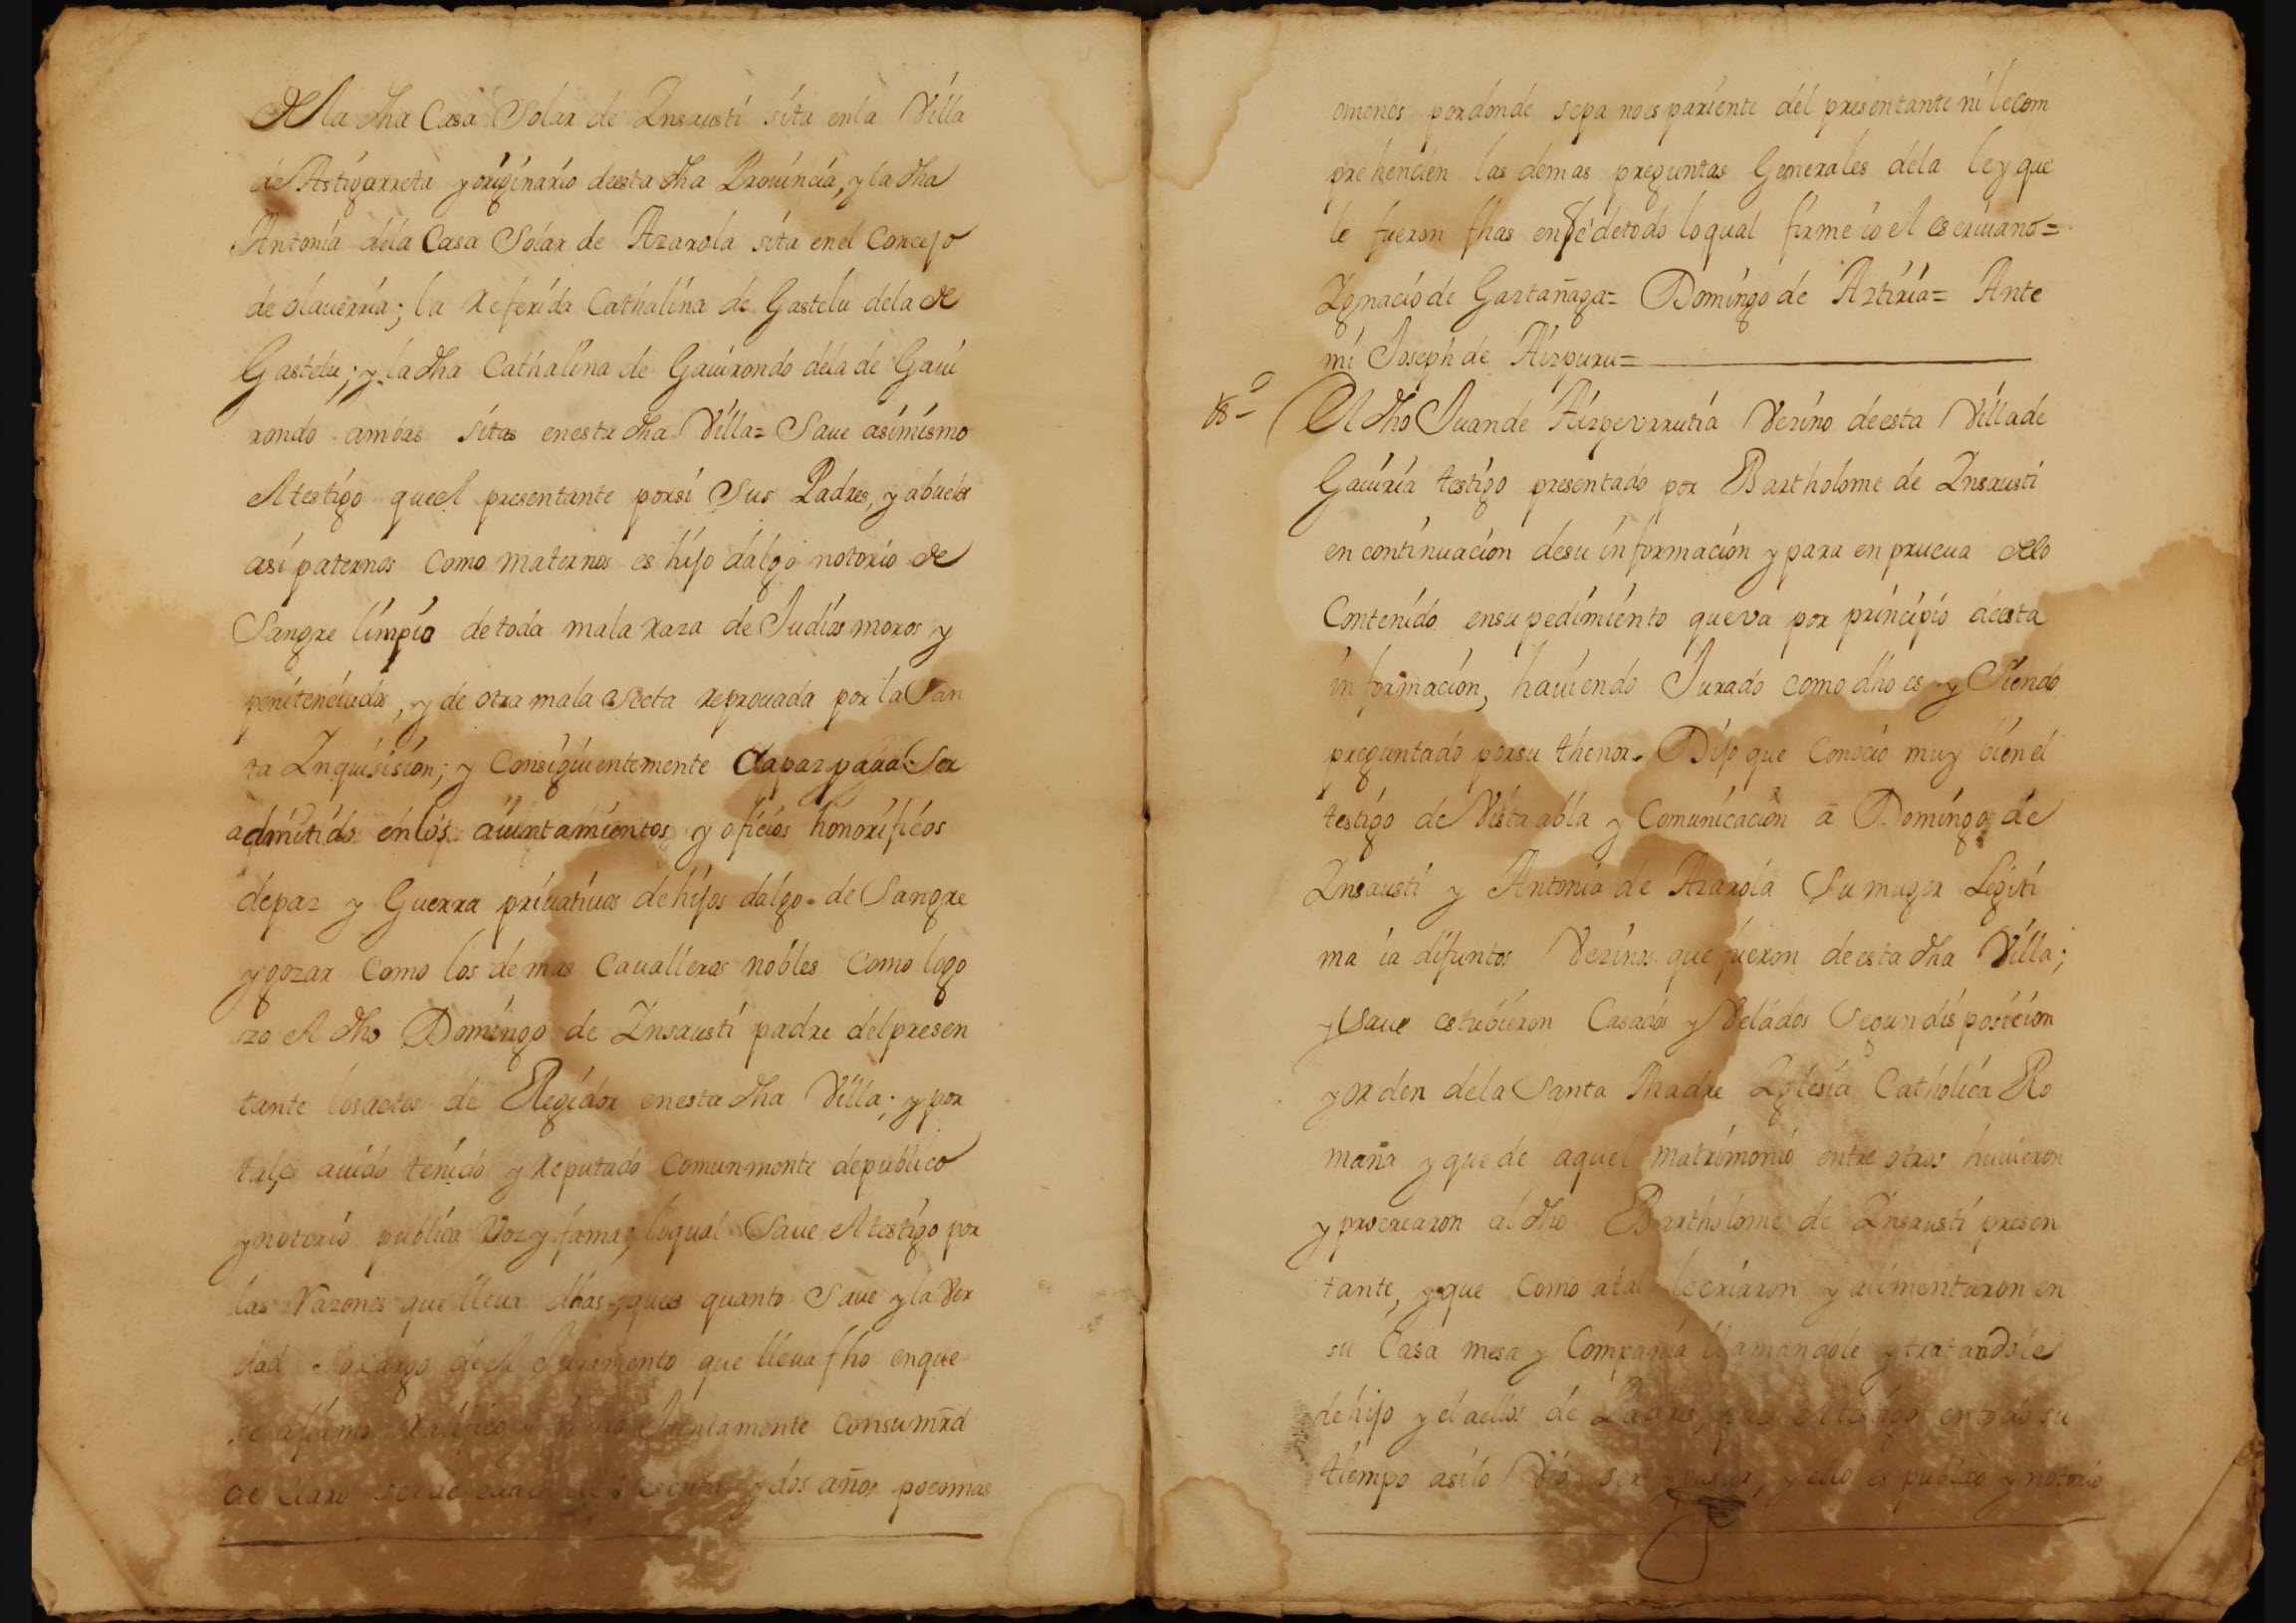 de la dha Casa Solar de Insausti sita enla Villa
de Astigarreta y originario deesta dha Prouincia, y la dha
Antonia dela Casa Solar de Azarola sita enel Concejo
de olauerria; la referida Cathalina de Gastelu dela de
Gastelu; y la dha Cathalina de Gauirondo dela de Gaui
rondo ambas sitas enesta dha Villa= Saue asimismo
el testigo queel presentante porsi Sus Padres, y abuelos
asi paternos como maternos es hijo dalgo notorio de
Sangre limpio de toda mala raza de Judios moros y
penitenciados, y de otra mala secta reprouada por la San
ta Inquisision; y consiguientemente Capaz para Ser
admitido enlos aiuntamientos y oficios honorificos
depaz y Guerra priuatiuos de hijos dalgo de Sangre
y gozar como los demas caualleros nobles como logo
zo el dho Domingo de Insausti padre del presen
tante los actos de Regidor enesta dha Villa; y por
tales auido tenido y reputado comunmente depublico
y notorio publica voz y fama; loqual Saue el testigo por
las razones que lleua dhas, quees quanto Saue y la Ver
dad so cargo de el Juramento que lleua fho enque
se afirmo ratifico y firmo Juntamente consumrd
declaro ser de edad de sesenta y dos años pocomas
omenos pordonde sepa noes pariente del presentante ni lecom
prehenden las demas preguntas Generales dela ley que
le fueron fhas enfe detodo loqual firme io el escriuano=
Ignacio de Gaztañaga= Domingo de Aztiria= Ante
mi Joseph de Aizpuru=
El dho Juan de Aizpeurrutia Vezino deesta Villa de
Gauiria testigo presentado por Bartholome de Insausti
en continuacion desu informacion y para en prueua delo
Contenido ensu pedimiento queva por principio deesta
informacion, hauiendo Jurado como dho es y Siendo
preguntado porsu thenor. Dijo que Conocio muy bien el
testigo de Vista abla y Comunicacion â Domingo de
Insausti y Antonia de Azarola Su muger Legiti
ma ia difuntos Vezinos que fueron deesta dha Villa;
y Saue estubieron Casados y Velados Segun disposicion
y orden dela Santa Madre Iglesia Catholica Ro
mana y que de aquel matrimonio entre otros huuieron
y procrearon al dho Bartholome de Insausti presen
tante, y que como atal lecriaron y alimentaron en
su Casa mesa y Compania llamandole y tratandole
de hijo y el aellos de Padres, que el testigo entodo su
tiempo asilo Vio ser y pasar, y ello es publico y notorio